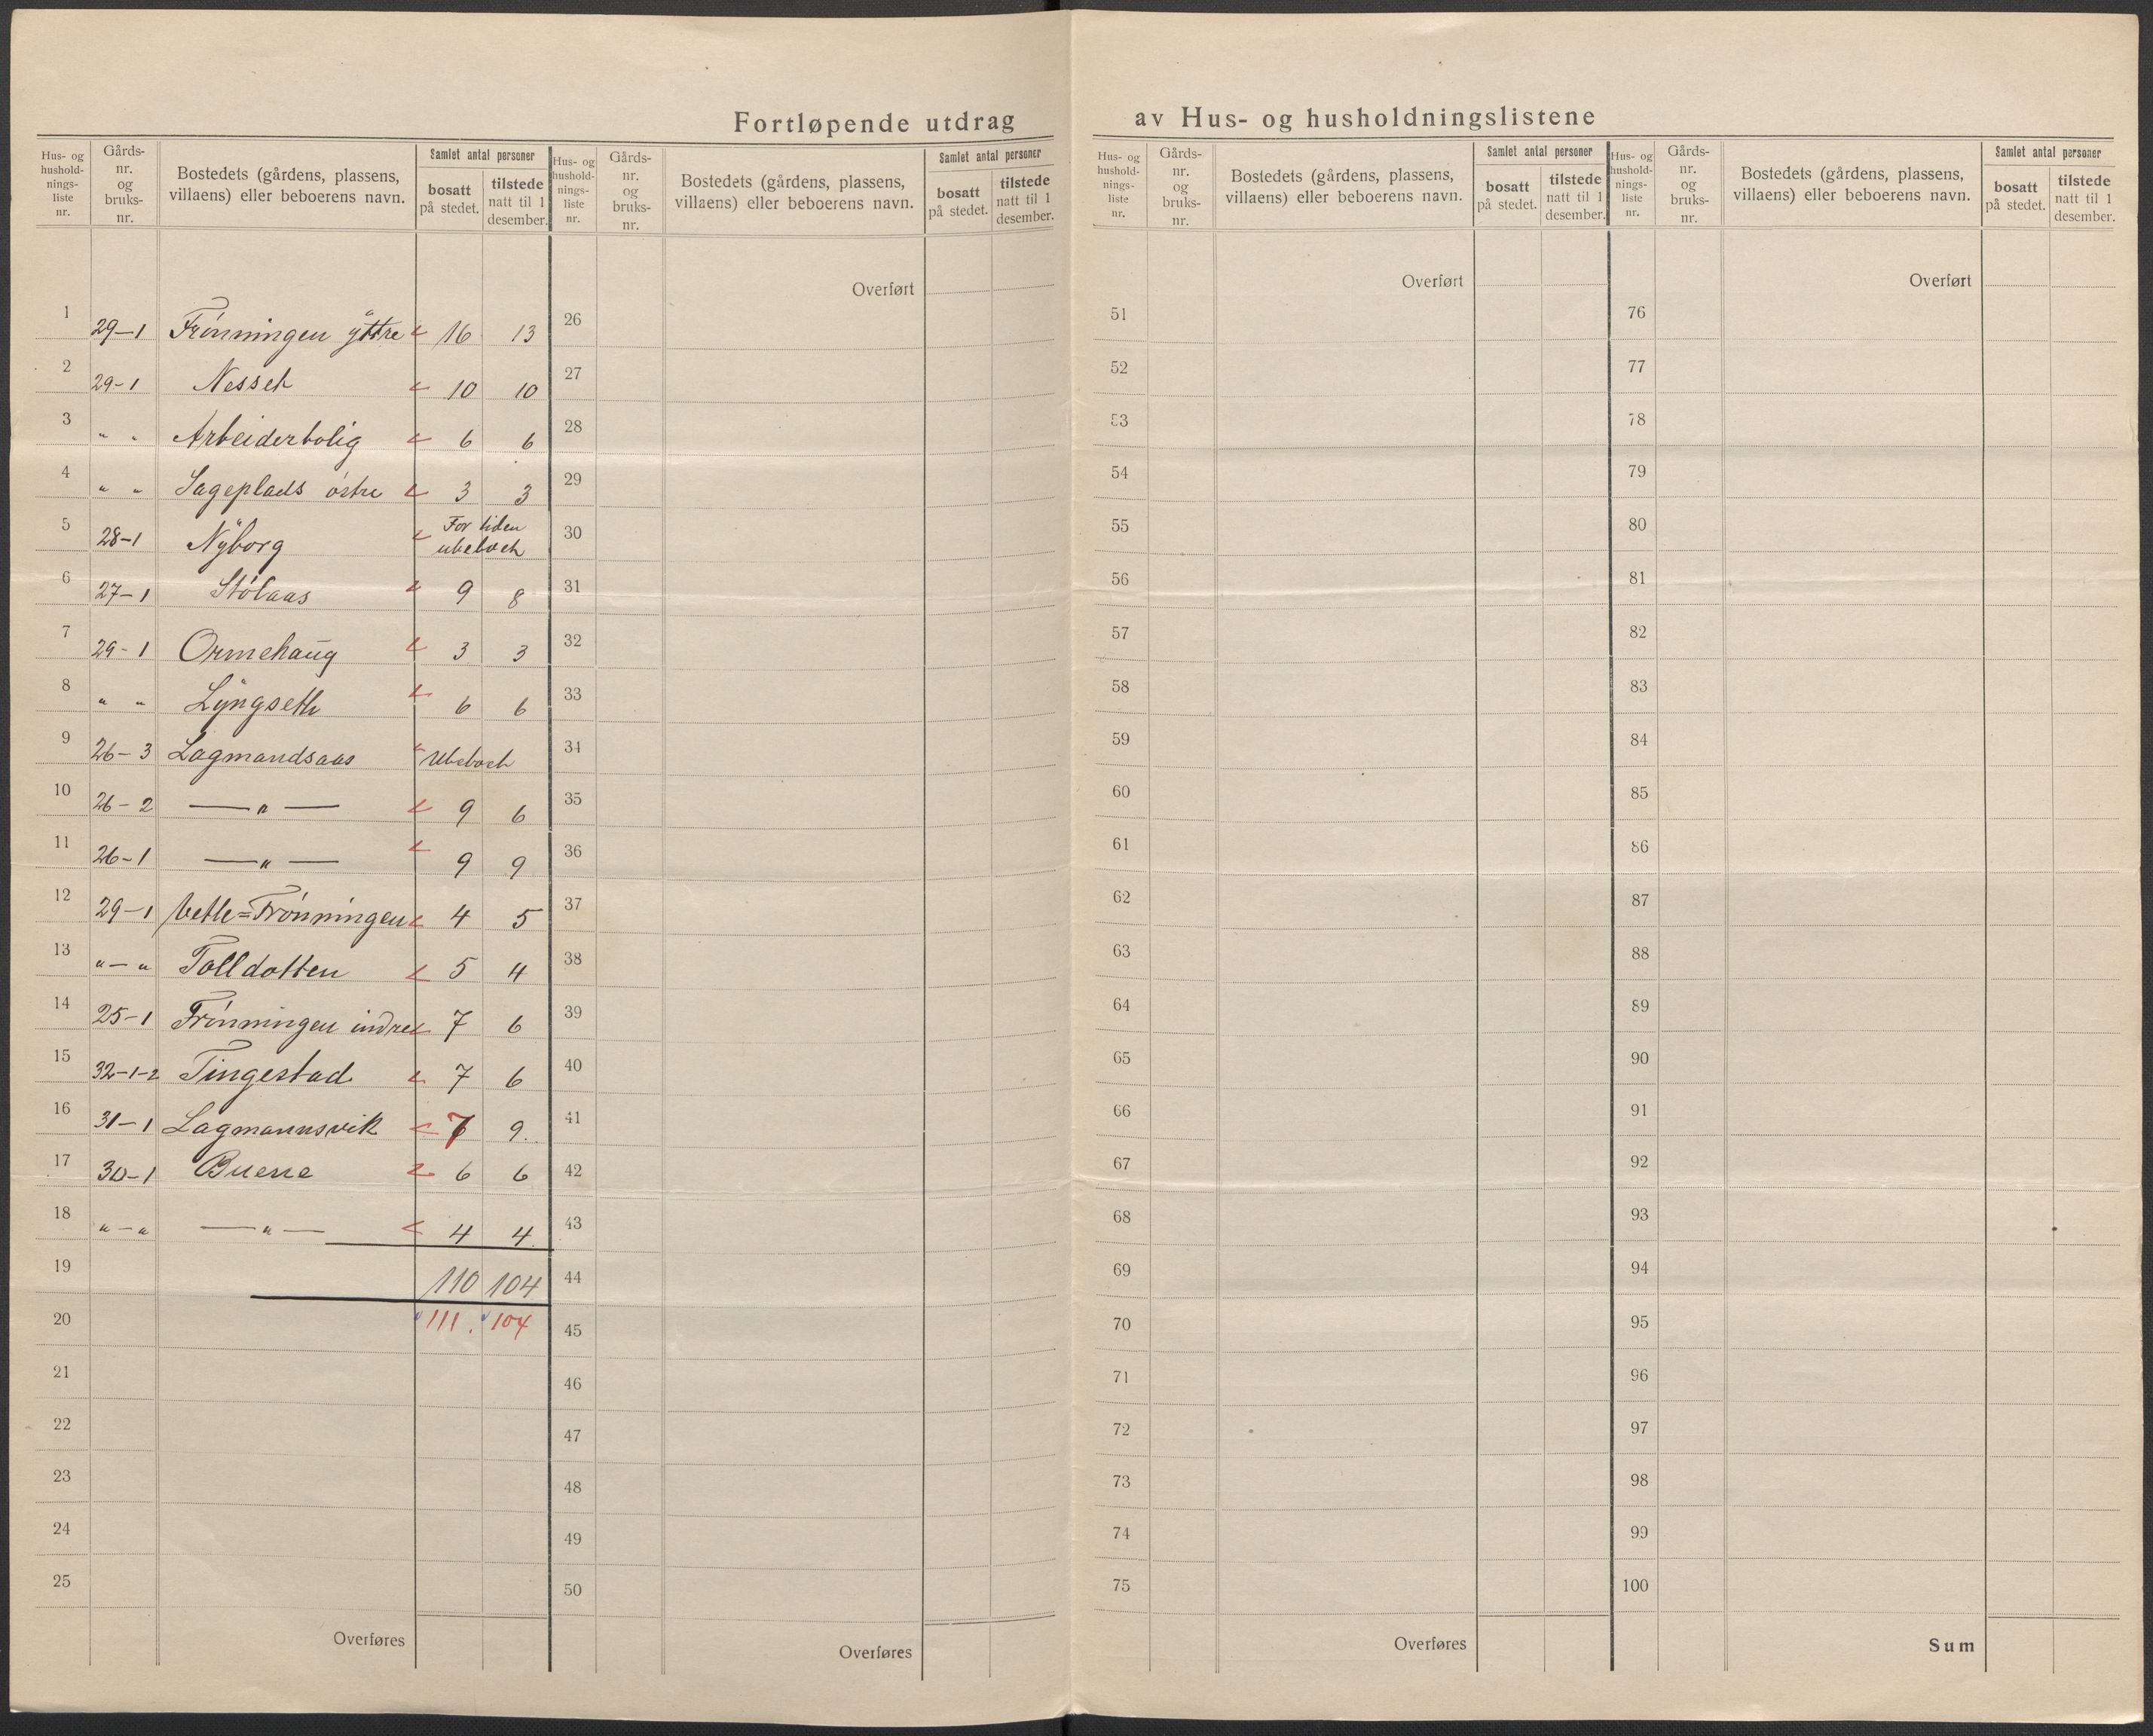 Fortløpende utdrag av Hus- og husholdningslistene
Hus- og hushold-nings-liste nr. Gårds-nr. og bruks-nr. Bostedets (gårdens, plassens, villaens) eller beboerens navn. Samlet antal personer bosatt på stedet. tilstede natt til 1 desember.
Hus- og hushold-nings-liste nr. Gårds-nr. og bruks-nr. Bostedets (gårdens, plassens, villaens) eller beboerens navn. Samlet antal personer bosatt på stedet. tilstede natt til 1 desember.
Hus- og hushold-nings-liste nr. Gårds-nr. og bruks-nr. Bostedets (gårdens, plassens, villaens) eller beboerens navn. Samlet antal personer bosatt på stedet. tilstede natt til 1 desember.
Hus- og hushold-nings-liste nr. Gårds-nr. og bruks-nr. Bostedets (gårdens, plassens, villaens) eller beboerens navn. Samlet antal personer bosatt på stedet. tilstede natt til 1 desember.
1 29-1 Frønningen yttre 16 13
2 29-1 Nesset 10 10
3 " " Arbeiderbolig 6 6
4 " " Sageplads østre 3 3
5 28-1 Nyborg For tiden ubeboet
6 27-1 Stølaas 9 8
7 29-1 Ormehaug 3 3
8 " " Lyngseth 6 6
9 26-3 Lagmandsaas Ubeboet
10 26-2 — " — 9 6
11 26-1 — " — 9 9
12 29-1 Vetle=Frønningen 4 5
13 "-" Tolldotten 5 4
14 25-1 Frønningen indre 7 6
15 32-1-2 Tingestad 7 6
16 31-1 Lagmannsvik 7 9
17 30-1 Buene 6 6
18 "-" — " — 4 4
19 110 104
20 111. 104
21
22
23
24
25
Overføres
Overført
26
27
28
29
30
31
32
33
34
35
36
37
38
39
40
41
42
43
44
45
46
47
48
49
50
Overføres
Overført
51
52
53
54
55
56
57
58
59
60
61
62
63
64
65
66
67
68
69
70
71
72
73
74
75
Overføres
Overført
76
77
78
79
80
81
82
83
84
85
86
87
88
89
90
91
92
93
94
95
96
97
98
99
100
Sum